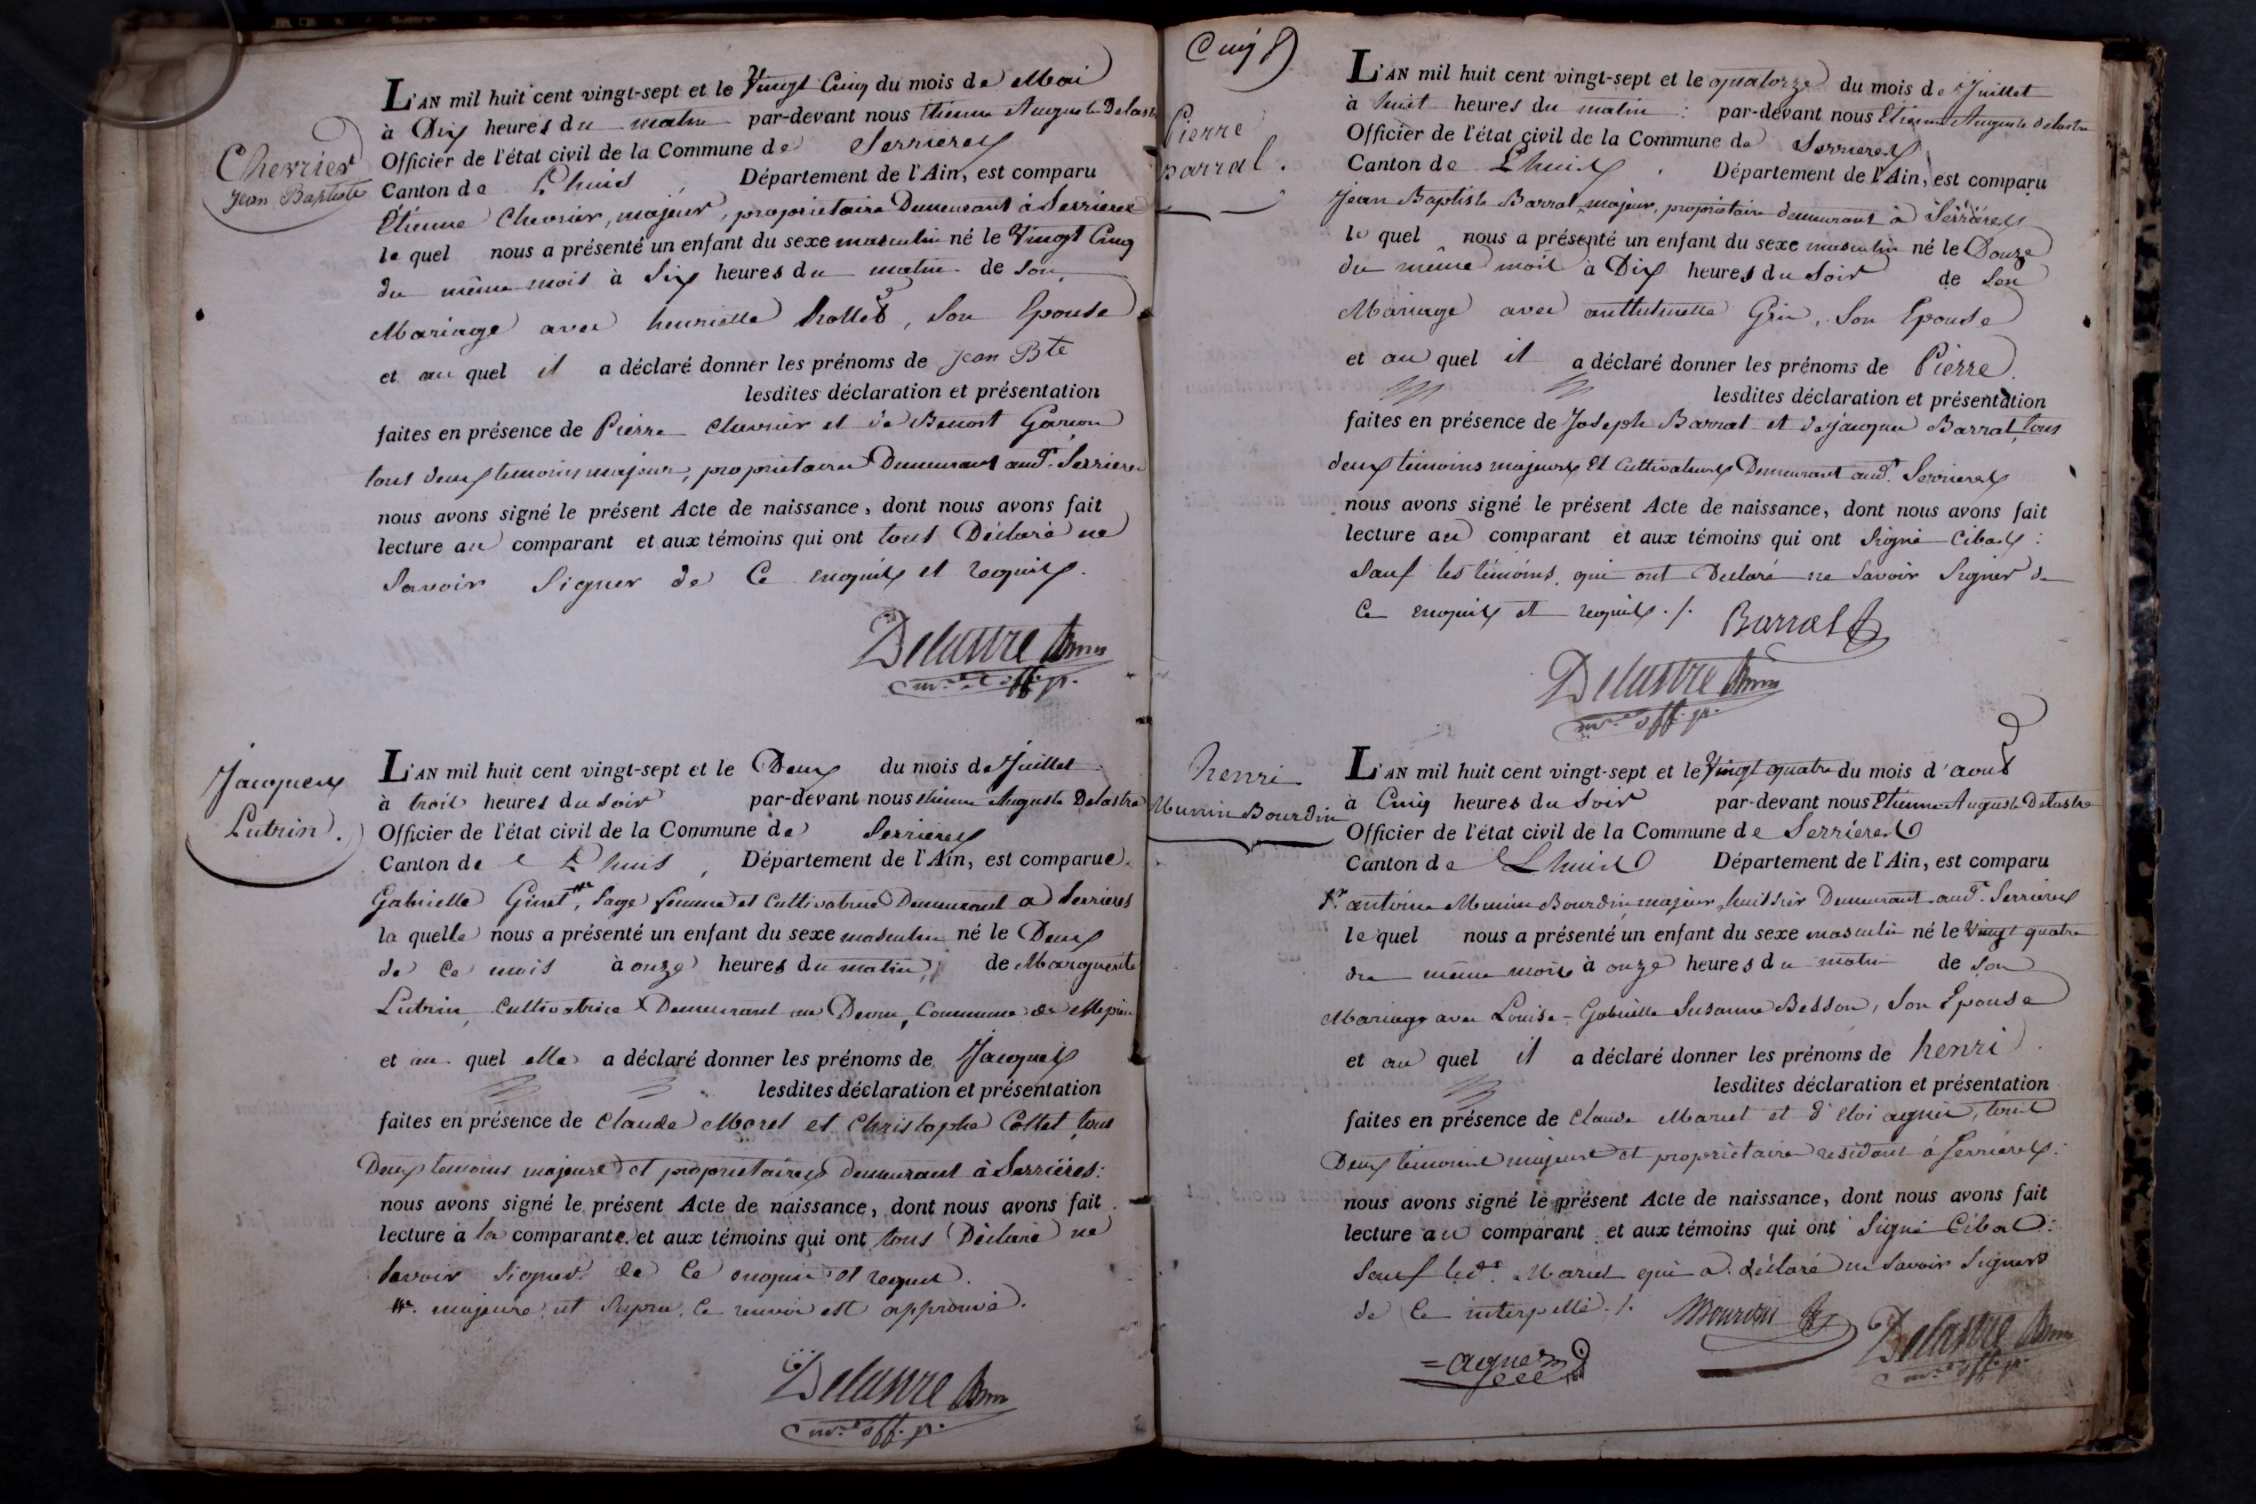 Chevrier
Jean Baptiste
L'AN mil huit cent vingt-sept et le Vingt Cinq du mois de Mai
à Dix heures du matin par-devant nous Etienne Auguste Delastre
Officier de l'état civil de la Commune de Serrieres
Canton de Lhuis, Département de l'Ain, est comparu
Etienne Chevrier, majeur, propriétaire Demeurant à Serrieres
le quel nous a présenté un enfant du sexe masculin né le Vingt Cinq
du même mois à Six heures du matin de son
Mariage avec henriette, son Epouse
et au quel il a déclaré donner les prénoms de Jean Bte
lesdites déclaration et présentation
faites en présence de Pierre Chevrier et de Benoit
tous deux temoins majeurs, propriétaires Demeurant aud.t Serrieres
nous avons signé le présent Acte de naissance, dont nous avons fait
lecture au comparant et aux témoins qui ont tous Déclaré ne
Savoir Signer de Ce enquis et requis.
Delastre
Jacques
Lutrin.
L'AN mil huit cent vingt-sept et le Deux du mois de Juillet
à trois heures du soir par-devant nous Etienne Auguste Delastre
Officier de l'état civil de la Commune de Serrieres
Canton de Lhuis, Département de l'Ain, est comparue
Gabrielle Ginet, Sage femme et Cultivatrice Demeurant a Serrieres
la quelle nous a présenté un enfant du sexe masculin né le Deux
de ce mois à onze heures du matin, de Marguerite
Lutrin, Cultivatrice Demeurant au, Commune de
et au quel elle a déclaré donner les prénoms de Jacques
lesdites déclaration et présentation
faites en présence de Claude Morel et Christophe Collet, tous
Deux temoins majeurs et propriétaires demeurant à Serrières:
nous avons signé le présent Acte de naissance, dont nous avons fait
lecture à la comparante et aux témoins qui ont tous Déclaré ne
Savoir Signer de Ce enquis et requis.
majeure ut Supra, Ce renvoi est approuvé.
Delastre
Cinq
Pierre
barral.
L'AN mil huit cent vingt-sept et le quatorze du mois de Juillet
à huit heures du matin : par-devant nous Etienne Auguste Delastre
Officier de l'état civil de la Commune de Serrieres
Canton de Lhuis. Département de l'Ain, est comparu
Jean Baptiste Barral, majeur, propriétaire demeurant à Serrières
le quel nous a présenté un enfant du sexe masculin né le Douze
du même mois à Dix heures du Soir de Son
Mariage avec, Son Epouse
et au quel il a déclaré donner les prénoms de Pierre
lesdites déclaration et présentation
faites en présence de Joseph Barral et de Jacques Barral, tous
deux témoins majeurs et Cultivateurs Demeurant aud.t Serrieres
nous avons signé le présent Acte de naissance, dont nous avons fait
lecture au comparant et aux témoins qui ont Signé Cibas :
Sauf les témoins qui ont Déclaré ne Savoir Signer de
Ce enquis et requis ./. Barral
Delastre
henri
Munin Bourdin
L'AN mil huit cent vingt-sept et le Vingt quatre du mois d'aout
à Cinq heures du Soir par-devant nous Etienne Auguste Delastre
Officier de l'état civil de la Commune de Serrieres
Canton de Lhuis Département de l'Ain, est comparu
Sr. antoine Munin Bourdin, majeur, huissier Demeurant aud.t Serrieres
le quel nous a présenté un enfant du sexe masculin né le Vingt quatre
du même mois à onze heures du matin de son
Mariage avec Louise-Gabrielle Susanne Besson, Son Epouse
et au quel il a déclaré donner les prénoms de henri.
lesdites déclaration et présentation
faites en présence de Claude Maret et d'Eloi agnier, tous
Deux témoins majeurs et propriétaires residant à Serrières:
nous avons signé le présent Acte de naissance, dont nous avons fait
lecture au comparant et aux témoins qui ont Signé Cibas:
Sauf led.t Maret qui a déclaré ne Savoir Signer
de Ce interpellé ./.
Delastre